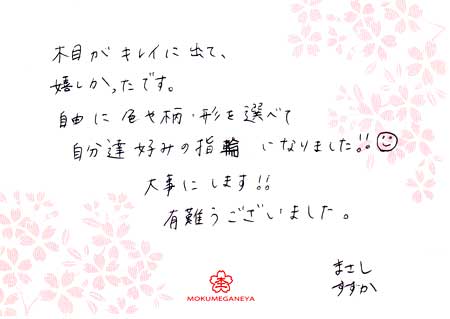 木目がキレイに出て、
嬉しかったです。
自由に色や柄・形を選べて
自分達好みの指輪になりました!!
大事にします!!
有難うございました。
まさし
すずか
MOKUMEGANEYA